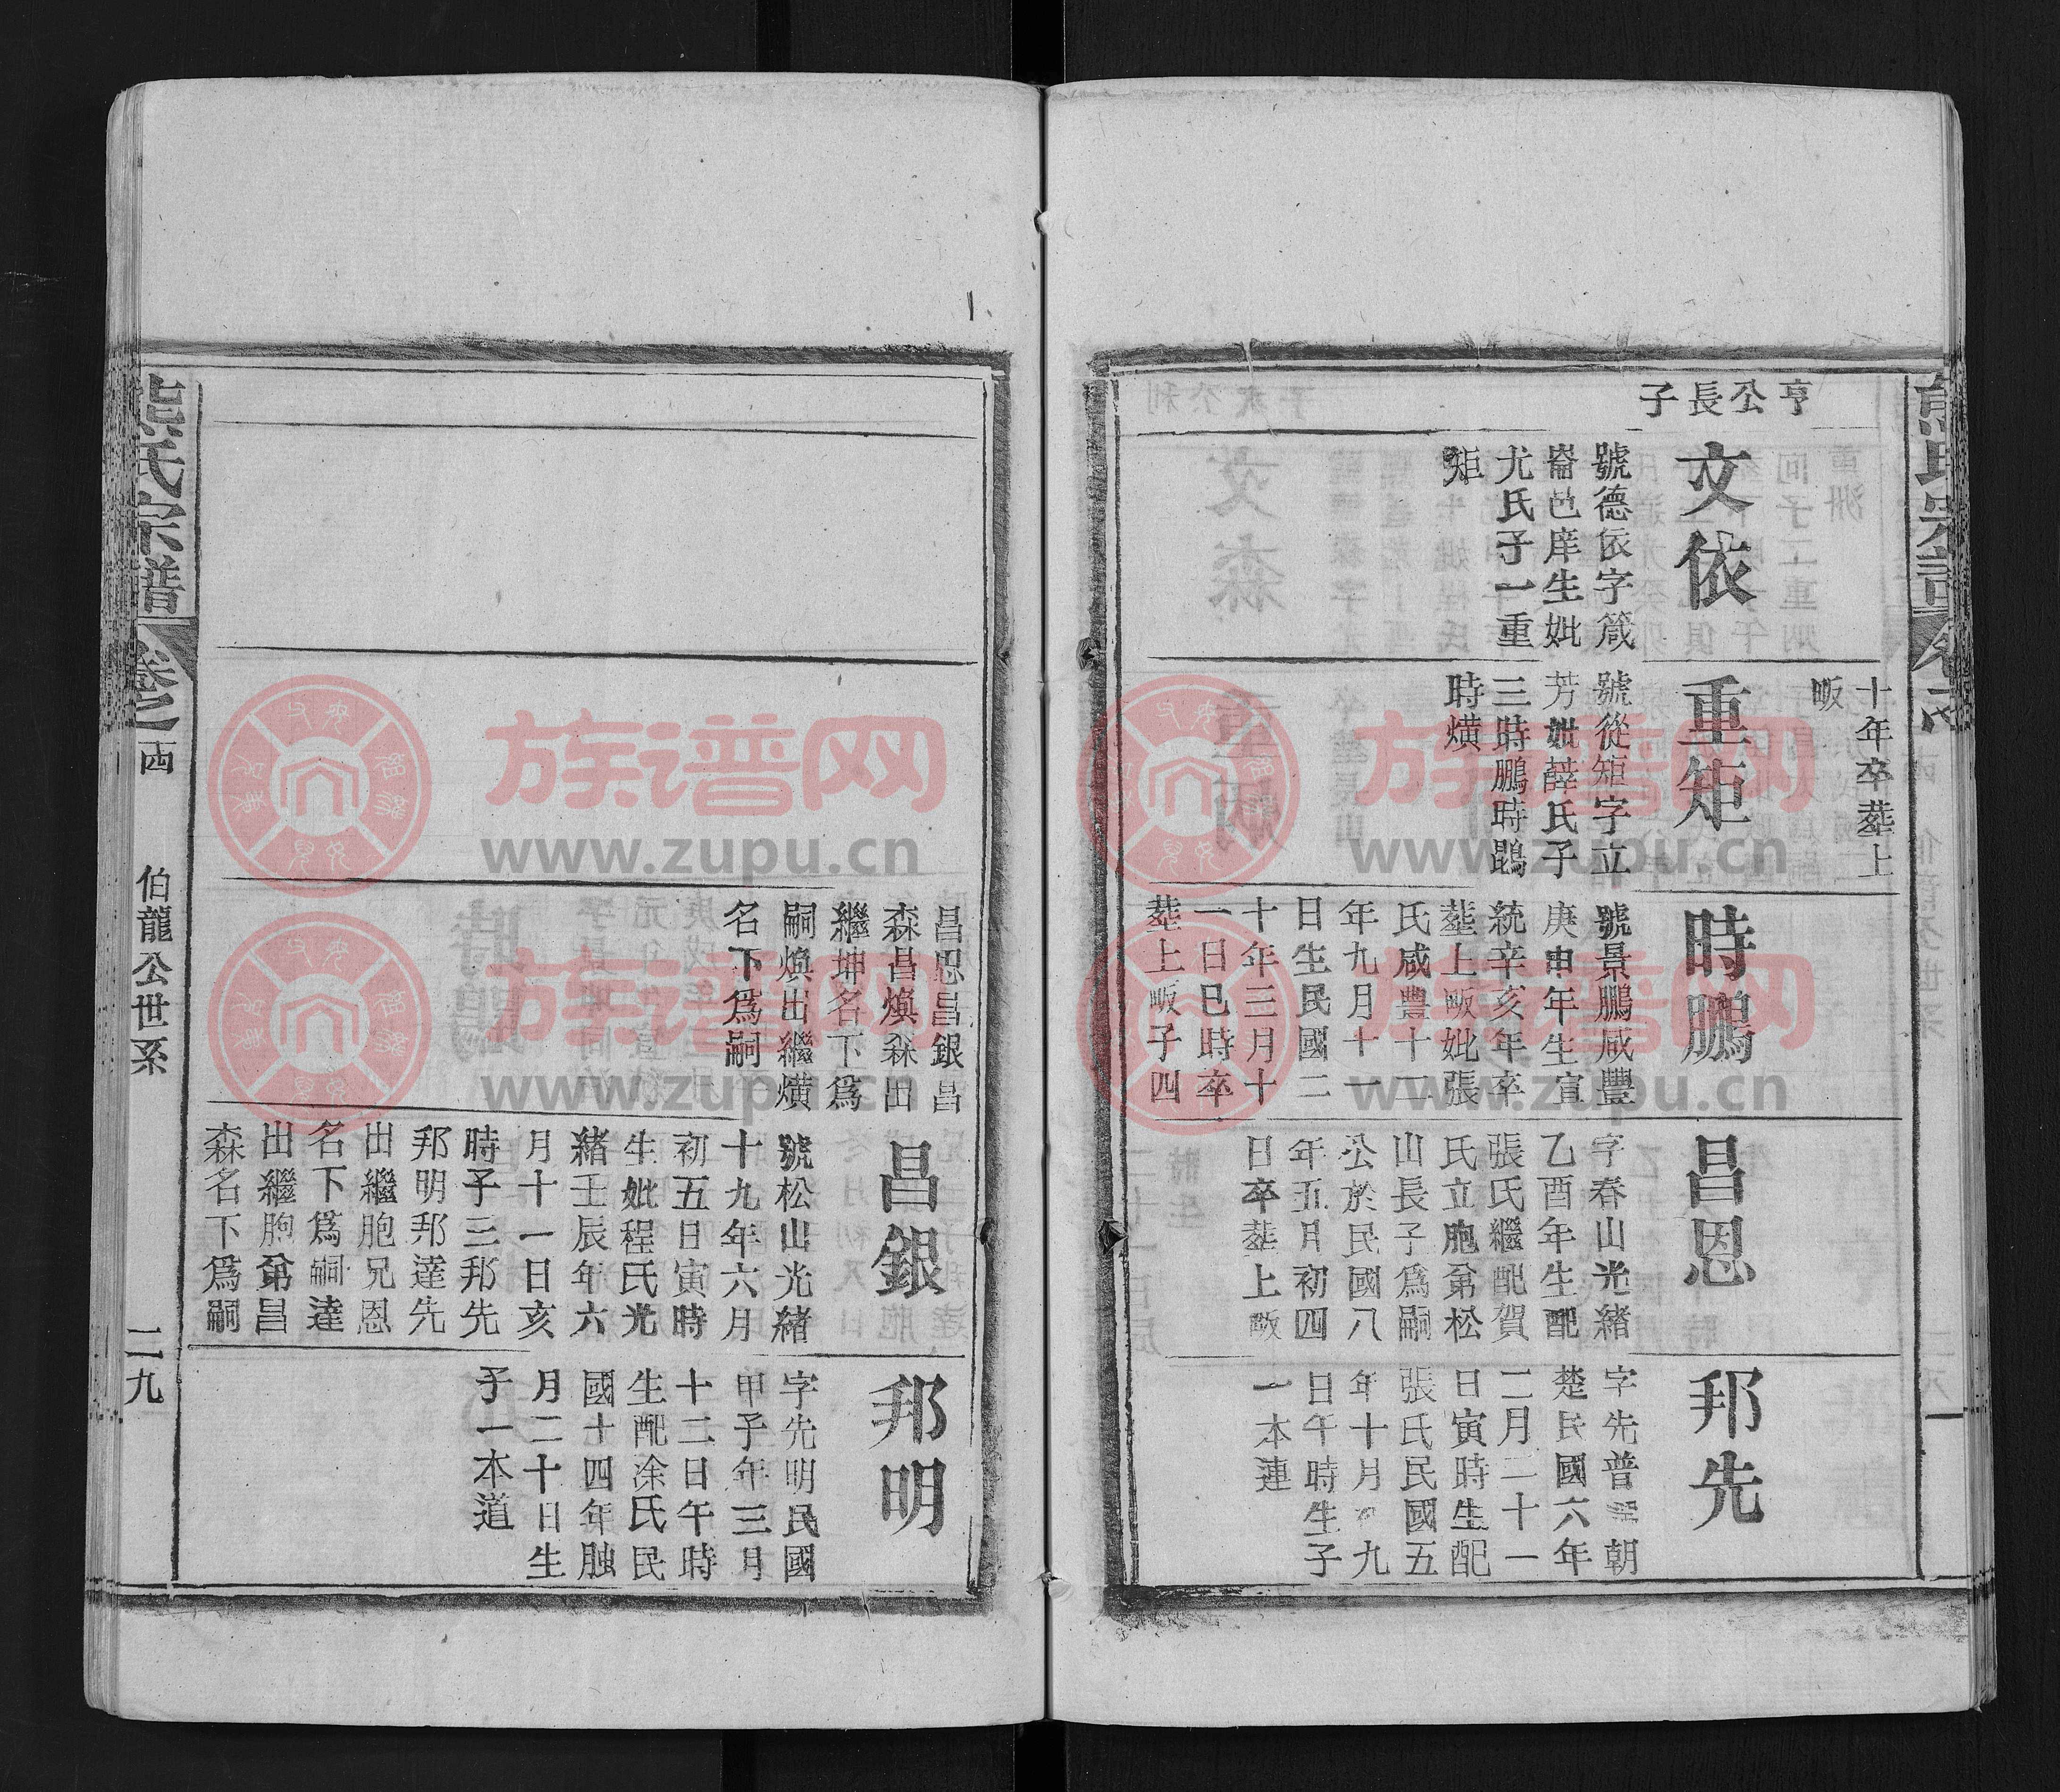 亨公長子
文依
號德依字箴
崙邑庠生妣
尤氏子一重
矩
十年卒塟上
畈
重矩
號從矩字立
芳妣薛氏子
三時鵬時鵾
時熿
時鵬
號景鵬咸豐
庚申年生宣
統辛亥年卒
塟上畈妣張
氏咸豐十一
年九月十一
日生民國二
十年三月十
一日巳時卒
塟上畈子四
昌恩
字春山光緒
乙酉年生配
張氏繼配賀
氏立胞弟松
山長子為嗣
公於民國八
年五月初四
日卒塟上畈
邦先
字先普 朝
楚民國六年
二月二十一
日寅時生配
張氏民國五
年十月 九
日午時生子
一本連
昌恩昌銀昌
森昌煥森出
繼坤名下為
嗣煥出繼熿
名下為嗣
昌銀
號松山光緒
十九年六月
初五日寅時
生妣程氏光
緒壬辰年六
月十一日亥
時子三邦先
邦明邦達先
出繼胞兄恩
名下為嗣達
出繼胞弟昌
森名下為嗣
邦明
字先明民國
甲子年三月
十二日午時
生配涂氏民
國十四年
月二十日生
子一本道
熊氏宗譜
卷之
伯龍公世系
二九
族谱网
www.zupu.cn
族谱网
www.zupu.cn
族谱网
www.zupu.cn
族谱网
www.zupu.cn